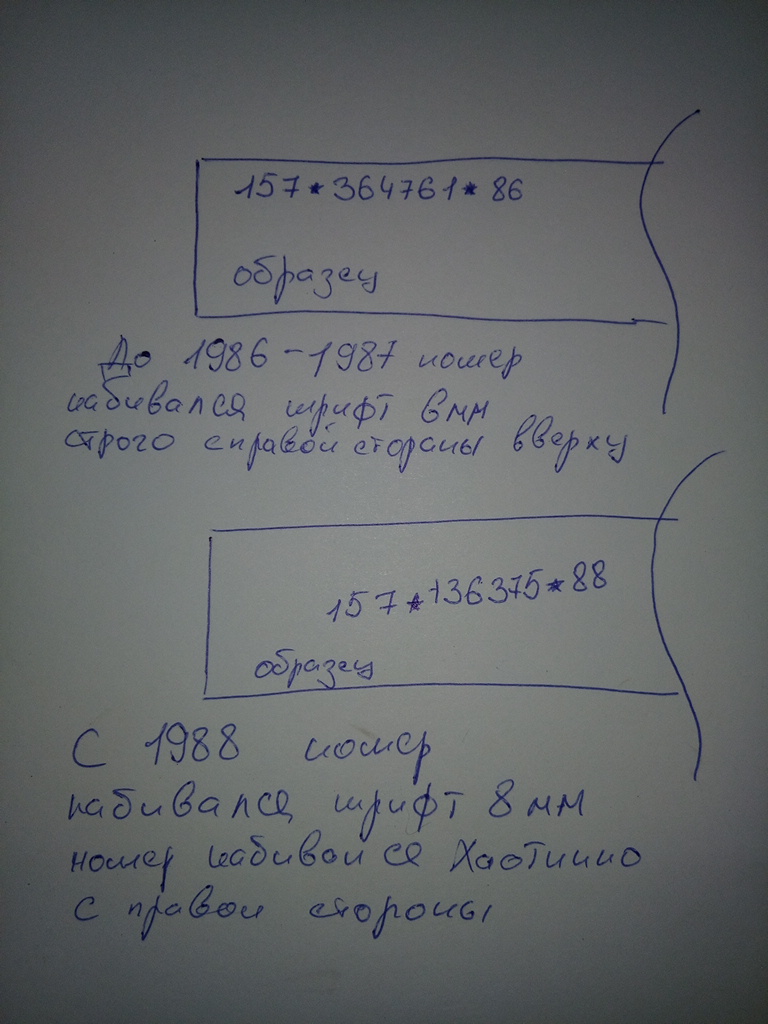 157*364761*86
образец
До 1986-1987 номер
набивался шрифт 6мм
строго справой стораны вверху
157*136375*88
образец
С 1988 номер
набивался шрифт 8мм
номер набивался Хаотично
с правой стороны